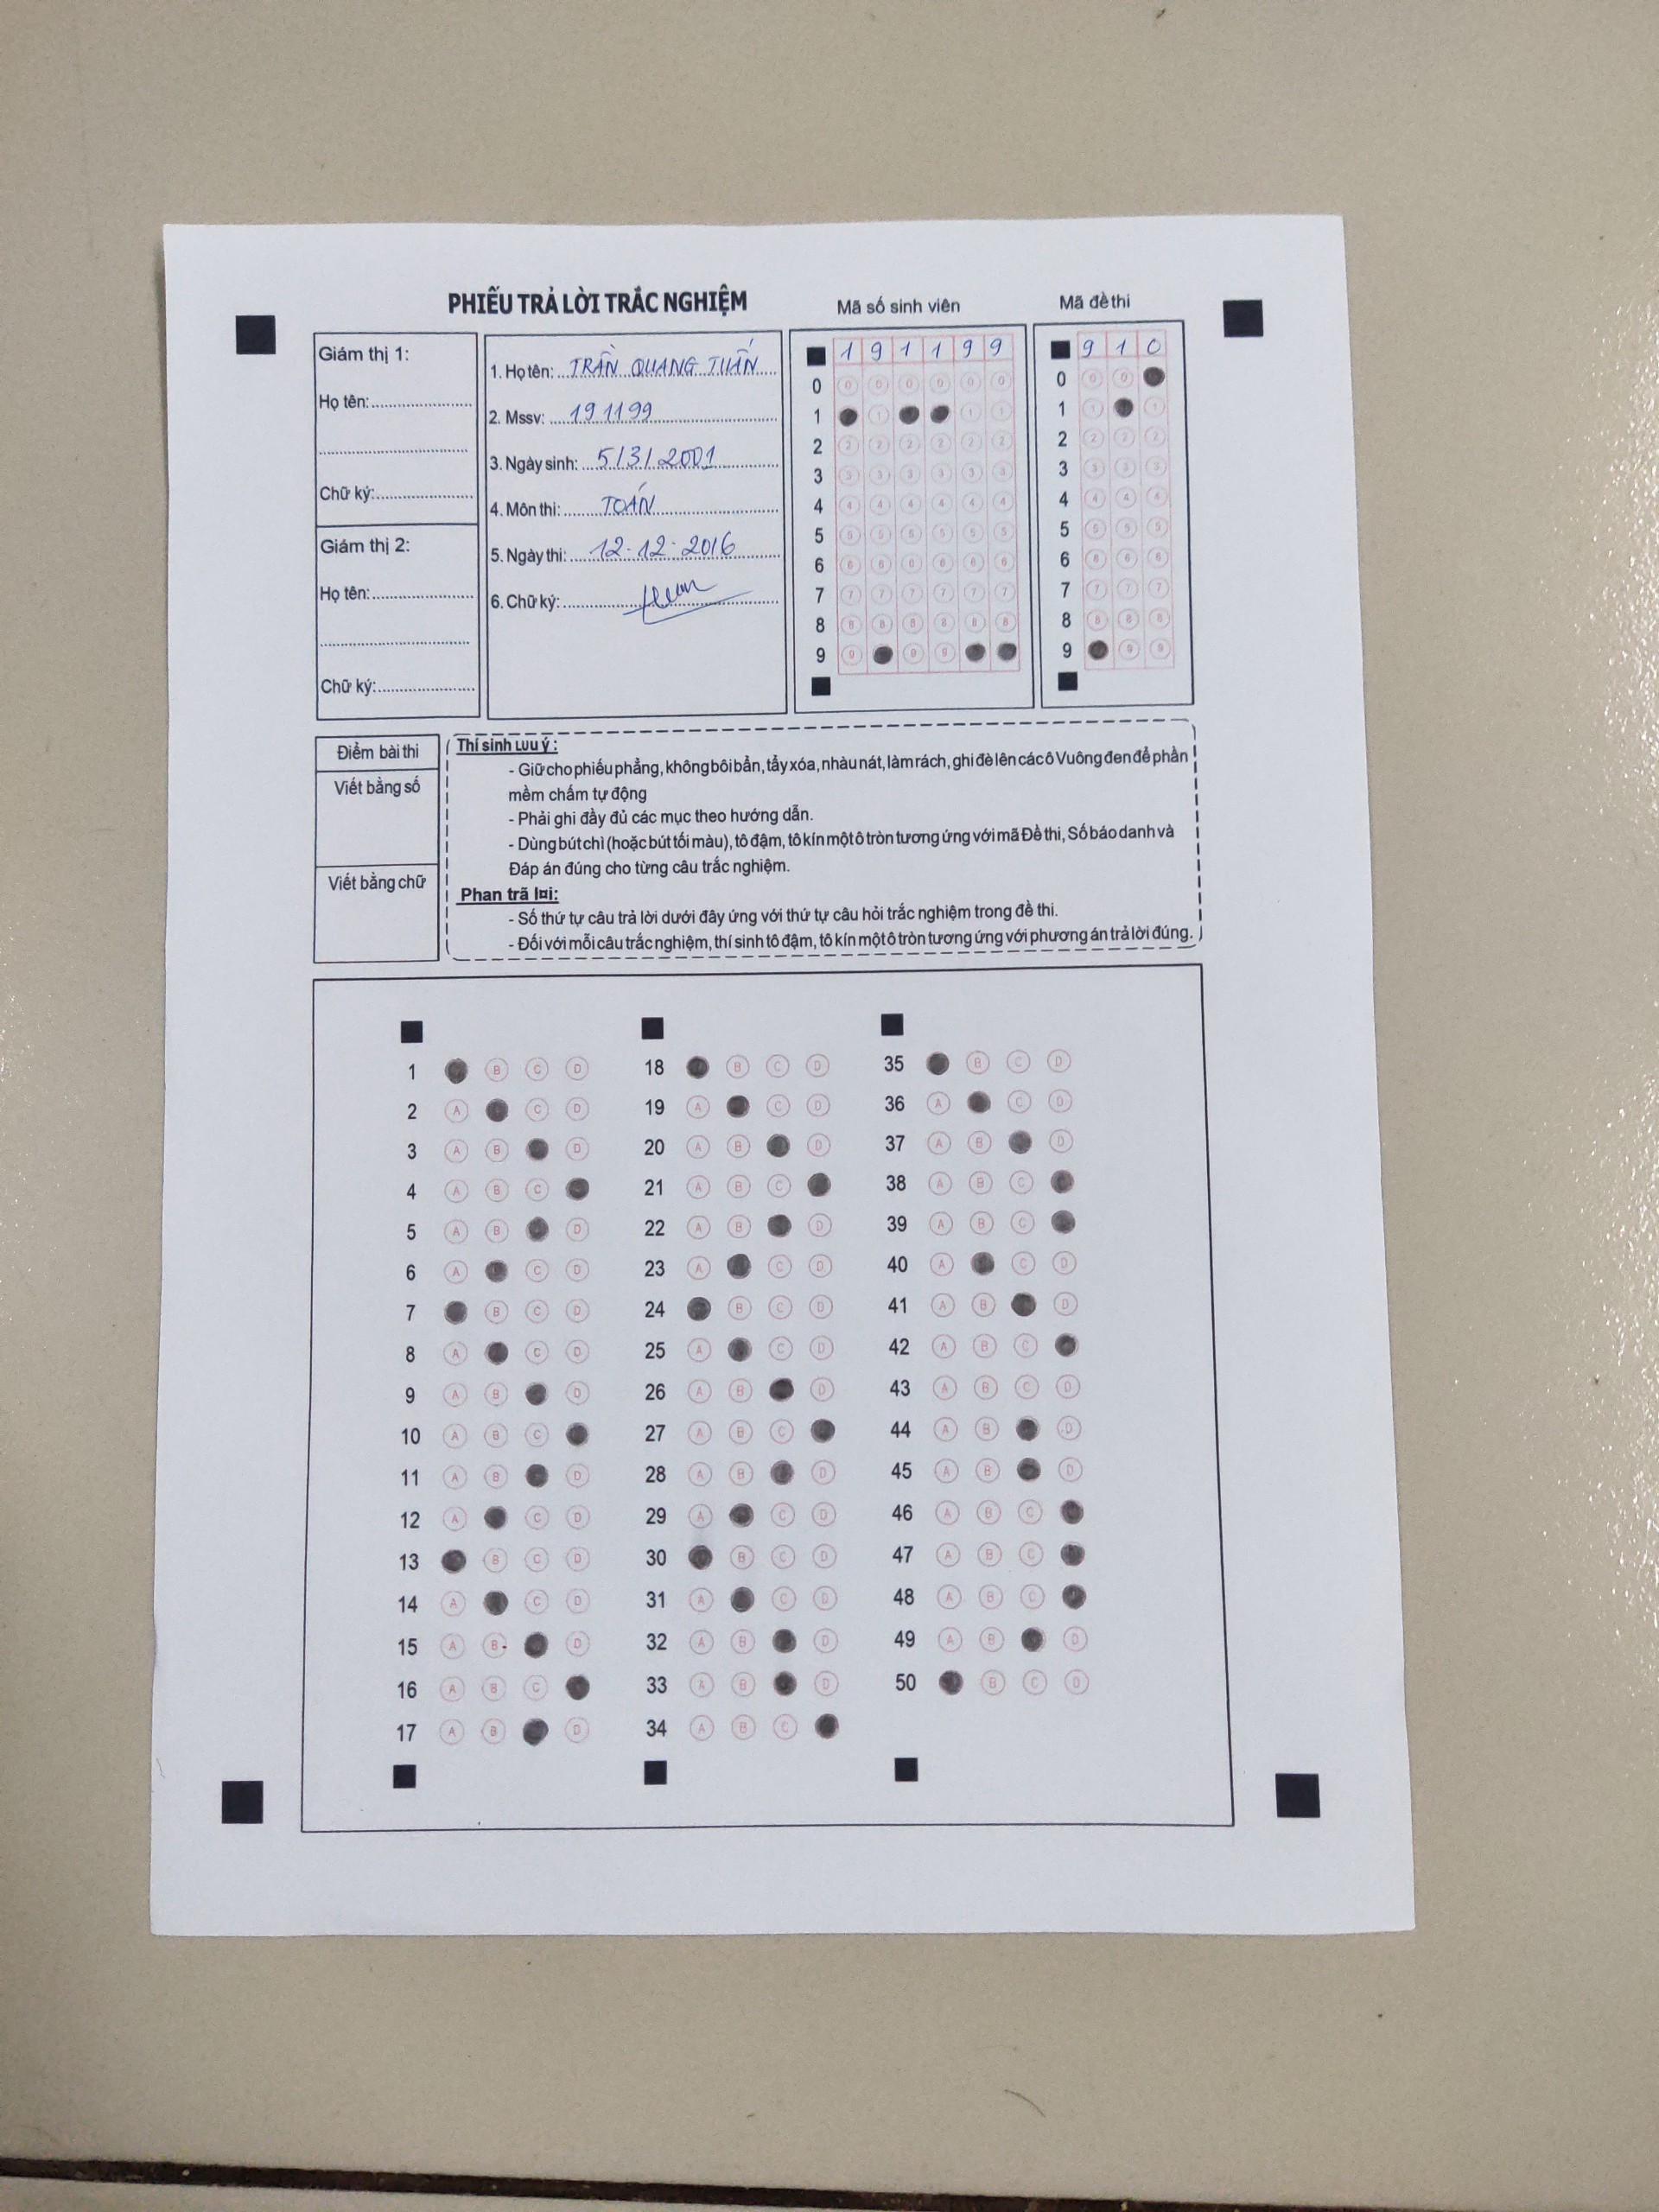 PHIẾU TRẢ LỜI TRẮC NGHIỆM
Mã số sinh viên
Mã đề thi
Giám thị 1:
Họ tên:
Chữ ký:
Giám thị 2:
Họ tên:
Chữ ký:
1. Họ tên: TRẦN QUANG TUẤN
2. Mssv: 191199
3. Ngày sinh: 5/3/2001
4. Môn thi: TOÁN
5. Ngày thi: 12.12.2016
6. Chữ ký:
1 9 1 1 9 9
0 0 0 0 0 0 0
1 1 1 1
2 2 2 2 2 2 2
3 3 3 3 3 3 3
4 4 4 4 4 4 4
5 5 5 5 5 5 5
6 6 6 6 6 6 6
7 7 7 7 7 7 7
8 8 8 8 8 8 8
9 9 9 9
9 1 0
0 0 0
1 1 1
2 2 2 2
3 3 3 3
4 4 4 4
5 5 5 5
6 6 6 6
7 7 7 7
8 8 8 8
9 9 9
Điểm bài thi
Viết bằng số
Viết bằng chữ
Thí sinh Lưu ý :
- Giữ cho phiếu phẳng, không bôi bẩn, tẩy xóa, nhàu nát, làm rách, ghi đè lên các ô Vuông đen để phần
mềm chấm tự động
- Phải ghi đầy đủ các mục theo hướng dẫn.
- Dùng bút chì (hoặc bút tối màu), tô đậm, tô kín một ô tròn tương ứng với mã Đề thi, Số báo danh và
Đáp án đúng cho từng câu trắc nghiệm.
Phan trã lời:
- Số thứ tự câu trả lời dưới đây ứng với thứ tự câu hỏi trắc nghiệm trong đề thi.
- Đối với mỗi câu trắc nghiệm, thí sinh tô đậm, tô kín một ô tròn tương ứng với phương án trả lời đúng.
1 B C D
2 A C D
3 A B D
4 A B C
5 A B D
6 A C D
7 B C D
8 A C D
9 A B D
10 A B C
11 A B D
12 A C D
13 B C D
14 A C D
15 A B D
16 A B C
17 A B D
18 B C D
19 A C D
20 A B D
21 A B C
22 A B D
23 A C D
24 B C D
25 A C D
26 A B D
27 A B C
28 A B D
29 A C D
30 B C D
31 A C D
32 A B D
33 A B D
34 A B C
35 B C D
36 A C D
37 A B D
38 A B C
39 A B C
40 A C D
41 A B D
42 A B C
43 A B C D
44 A B D
45 A B D
46 A B C
47 A B C
48 A B C
49 A B D
50 B C D